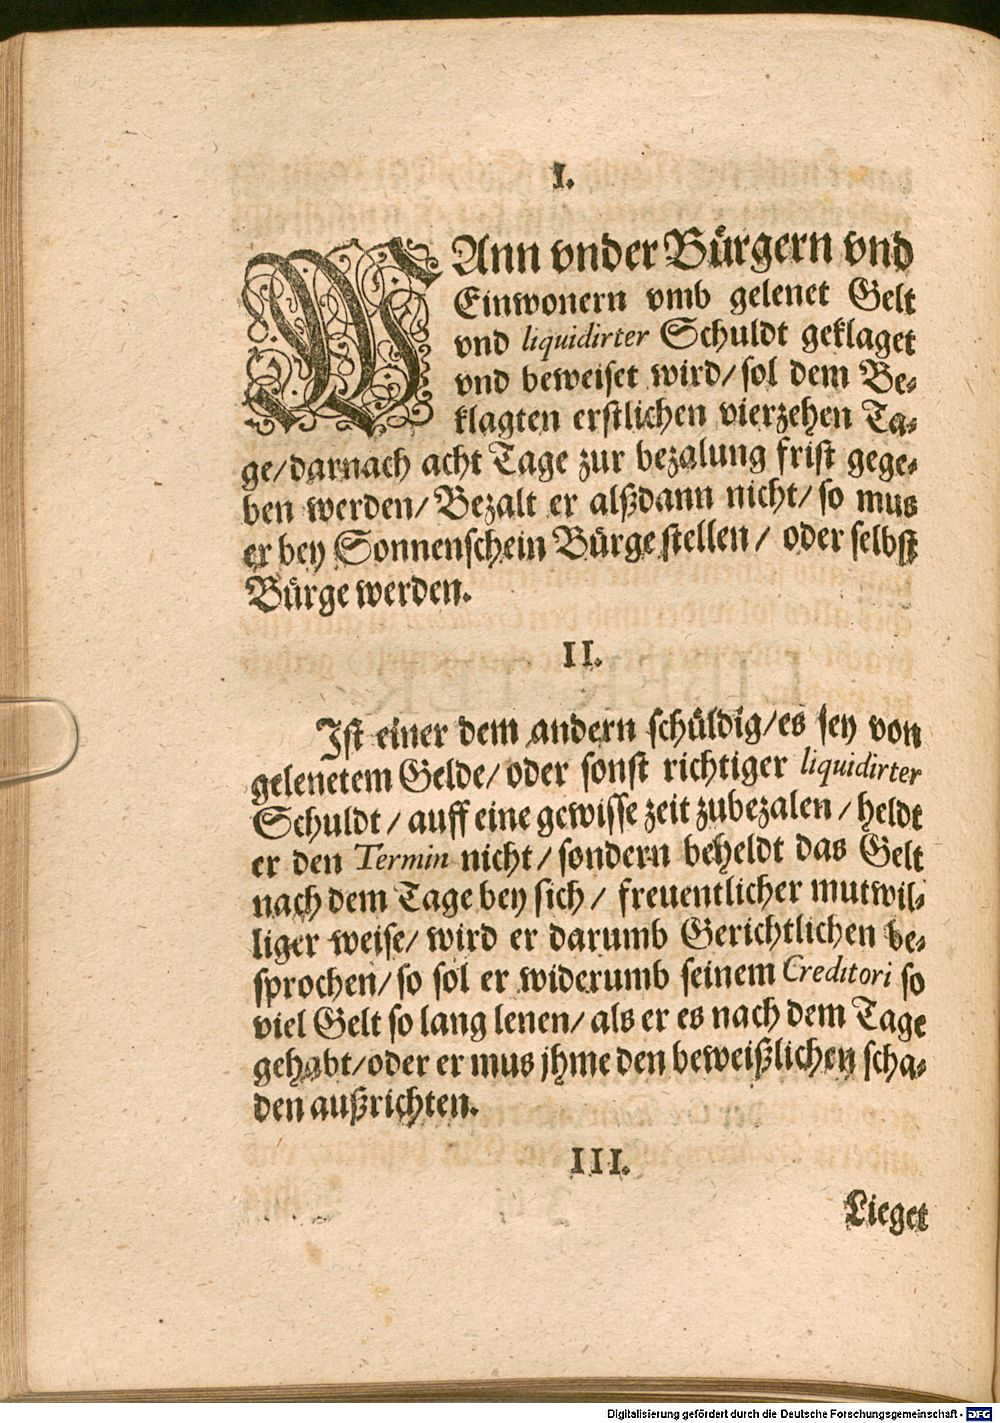 I.
WAnn vnder Bürgern vnd
Einwonern vmb gelenet Gelt
vnd liquidirter Schuldt geklaget
vnd beweiset wird/ sol dem Be-
klagten erstlichen vierzehen Ta-
ge/ darnach acht Tage zur bezalung frist gege-
ben werden/ Bezalt er alßdann nicht/ so mus
er bey Sonnenschein Bürge stellen/ oder selbst
Bürge werden.
II.
Ist einer dem andern schüldig/ es sey von
gelenetem Gelde/ oder sonst richtiger liquidirter
Schuldt/ auff eine gewisse zeit zubezalen/ heldt
er den Termin nicht/ sondern beheldt das Gelt
nach dem Tage bey sich/ freuentlicher mutwil-
liger weise/ wird er darumb Gerichtlichen be-
sprochen/ so sol er widerumb seinem Creditori so
viel Gelt so lang lenen/ als er es nach dem Tage
gehabt/ oder er mus jhme den beweißlichen scha-
den außrichten.
III.
Lieget
Digitalisierung gefördert durch die Deutsche Forschungsgemeinschaft - DFG